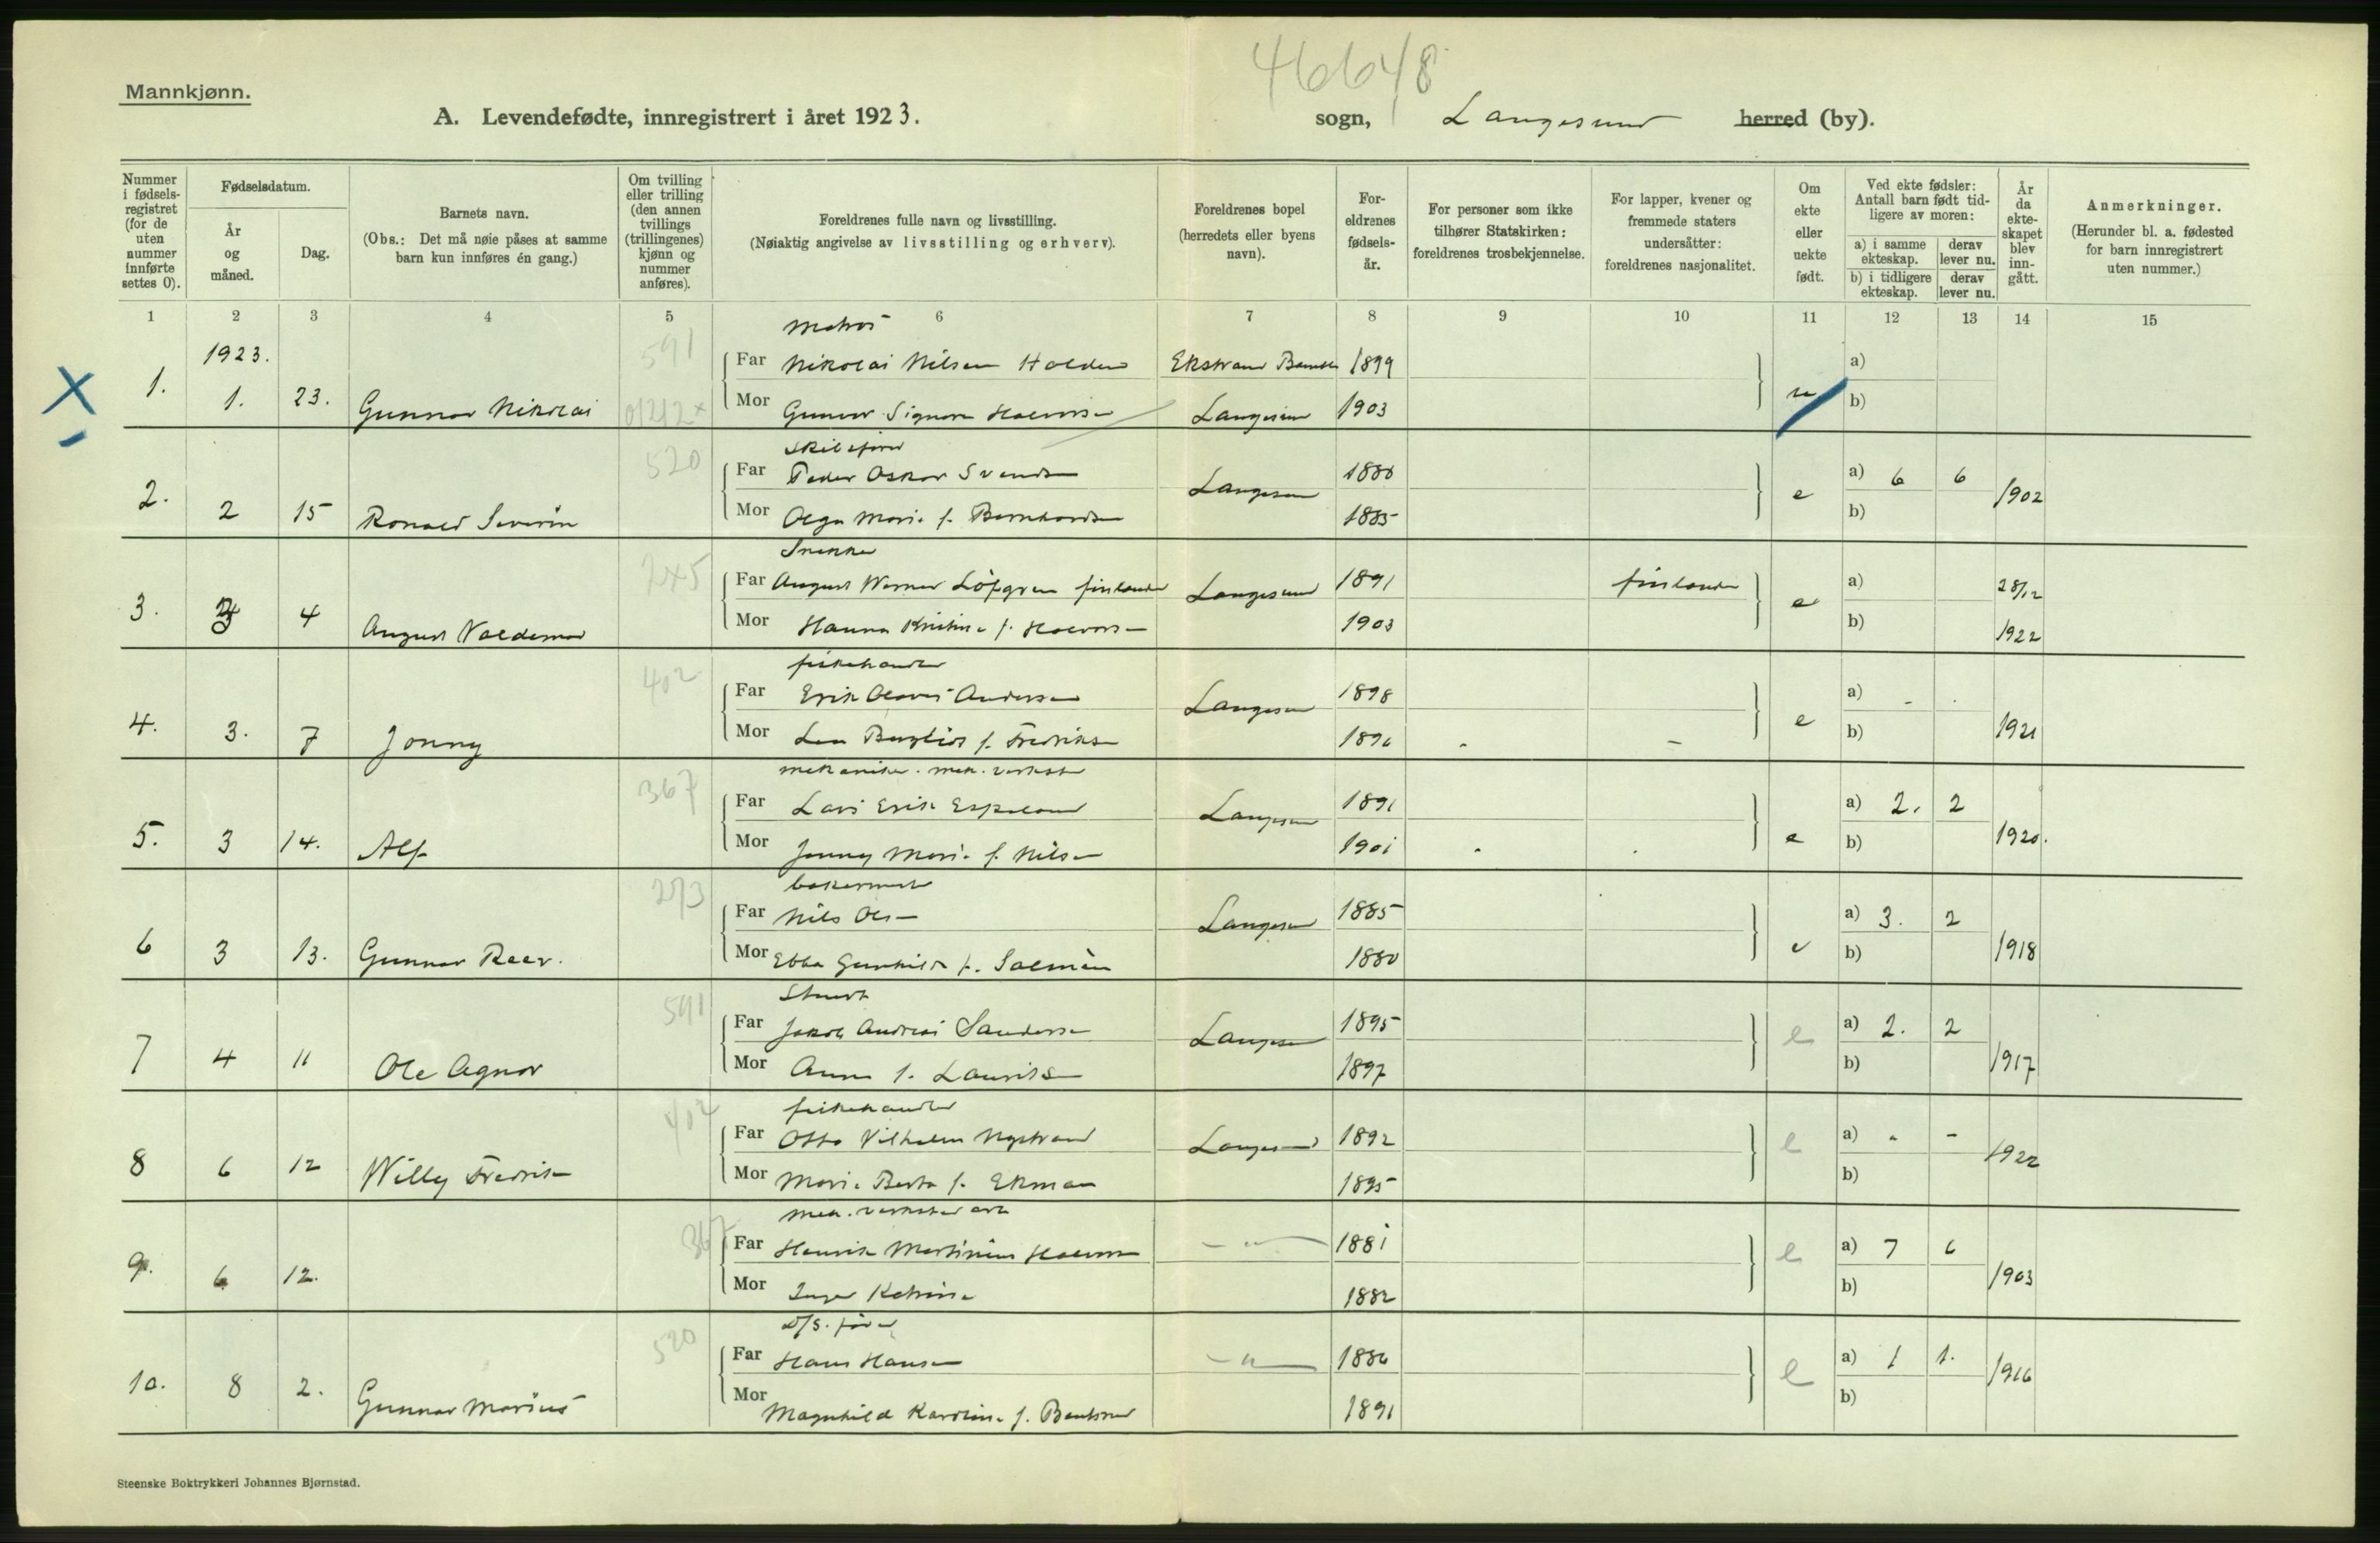 46648
Mannkjønn.
A. Levendefødte, innregistrert i året 1923.
sogn, Langesund herred (by).
Nummer i fødselsregistret (for de uten nummer innførte settes 0).
Fødselsdatum.
År og måned.
Dag.
Barnets navn.
(Obs.: Det må nøie påses at samme barn kun innføres én gang.)
Om tvilling eller trilling (den annen tvillings (trillingenes) kjønn og nummer anføres).
Foreldrenes fulle navn og livsstilling.
(Nøiaktig angivelse av livsstilling og erhverv).
Foreldrenes bopel (herredets eller byens navn).
Foreldrenes fødselsår.
For personer som ikke tilhører Statskirken: foreldrenes trosbekjennelse.
For lapper, kvener og fremmede staters undersåtter: foreldrenes nasjonalitet.
Om ekte eller uekte født.
Ved ekte fødsler: Antall barn født tidligere av moren:
a) i samme ekteskap.
derav lever nu.
b) i tidligere ekteskap.
derav lever nu.
År da ekteskapet blev inngått.
Anmerkninger.
(Herunder bl. a. fødested for barn innregistrert uten nummer.)
1 2 3 4 5 6 7 8 9 10 11 12 13 14 15
1923. 591 Matros
Far Nikolai Nilsen Halden Ekstrand Bamble 1899 a)
1. 1. 23. Gunnar Nikolai Mor Gunvor Signora Halvorsen Langesund 1903 u b)
520
Far Peder Oskar Svendsen Langesund 1880 a) 6 6 1902
2. 2 15 Ronald Severin Mor Olga Marie f. Bernhardsen 1885 e b)
245 Snekker
Far August Werner Löfgren finlender Langesund 1891 finlender a) 28/12
3. 3 4 August Valdemar Mor Hanna Kristine f. Halvorsen 1903 e b) 1922
402 fiskehandler
Far Erik Olaves Andersen Langesund 1898 a) -
4. 3. 7 Jonny Mor Lea f. Fredriksen 1896 - e b) 1921
367 mekaniker. mek. verksted
Far Lars Erik Espeland Langesund 1891 a) 2. 2
5. 3 14. Alf Mor Jenny Marie f. Nilsen 1901 e b) 1920.
273 bakermester
Far Nils Olsen Langesund 1885 a) 3. 2
6 3 13. Gunnar Mor Ebba Gunhild f. 1880 e b) 1918
591 Stuert
Far Jakob Andreas Sandersen Langesund 1895 a) 2. 2
7 4 11 Ole Agnar Mor Anna f. Lauritsen 1897 e b) 1917
402 fiskehandler
Far Otto Vilhelm Nystrand Langesund 1892 a) - - 1922
8 6 12 Willy Fredrik Mor Marie Berta f. Ekman 1895 e b)
367 mek. verksted arb
Far Henrik Martinius Halvorsen - " - 1881 a) 7 6
9. 6 12. Mor Inger Katrine 1882 e b) 1903
520 D/S. fører
Far Hans Hansen - " - 1886 a) 1 1. 1916
10. 8 2. Gunnar Marius Mor Magnhild Karoline f. Bentsen 1891 e b)
Steenske Boktrykkeri Johannes Bjørnstad.